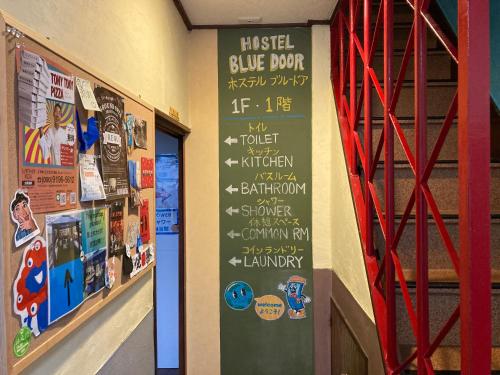 HOSTEL
BLUE DOOR
ホステル ブルードア
1F・1階
トイレ
← TOILET
キッチン
← KITCHEN
バスルーム
← BATHROOM
シャワー
← SHOWER
休憩スペース
← COMMON RM
コインランドリー
← LAUNDRY
welcome
ようこそ!
TONY TONY
PIZZA